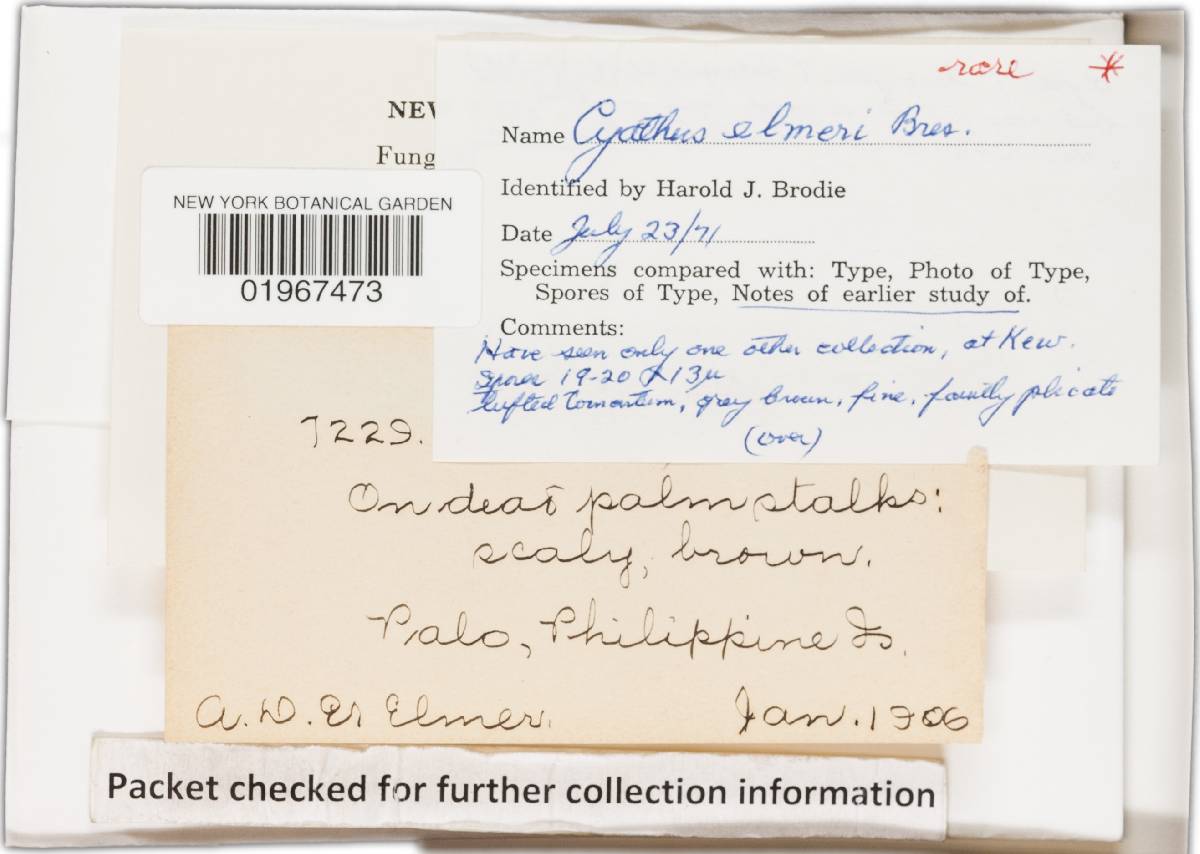 rare *
NEW
Fung
Name Cyathus elmeri Bres.
Identified by Harold J. Brodie
Date July 23/71
Specimens compared with: Type, Photo of Type,
Spores of Type, Notes of earlier study of.
Comments:
Have seen only one other collection, at Kew.
Spores 19-20 X 13µ
tufted tomentum, grey brown, fine, faintly plicate
(over)
NEW YORK BOTANICAL GARDEN
01967473
7229.
On dead palm stalks:
scaly, brown.
Palo, Philippine Is.
A. D. E. Elmer. Jan. 1906
Packet checked for further collection information